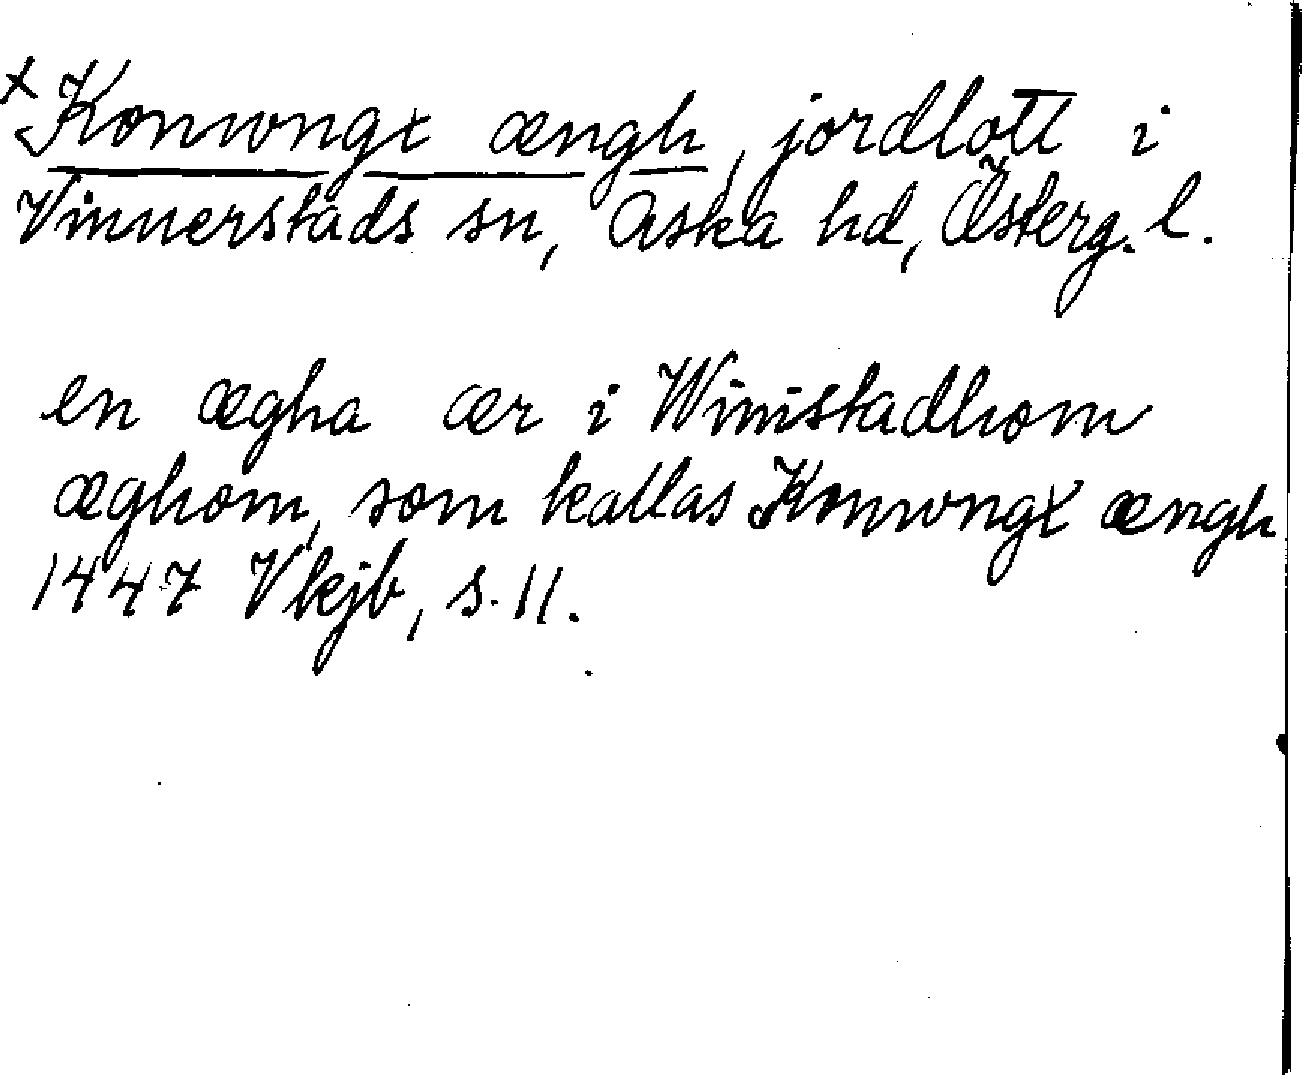 x Konungx ængh, jordlott i
Vinnerstads sn, Aska hd, Österg. l.
en ægha ær i Winistadhom
æghom, som kallas Konungx ængh
1447 Vkjb, s. 11.